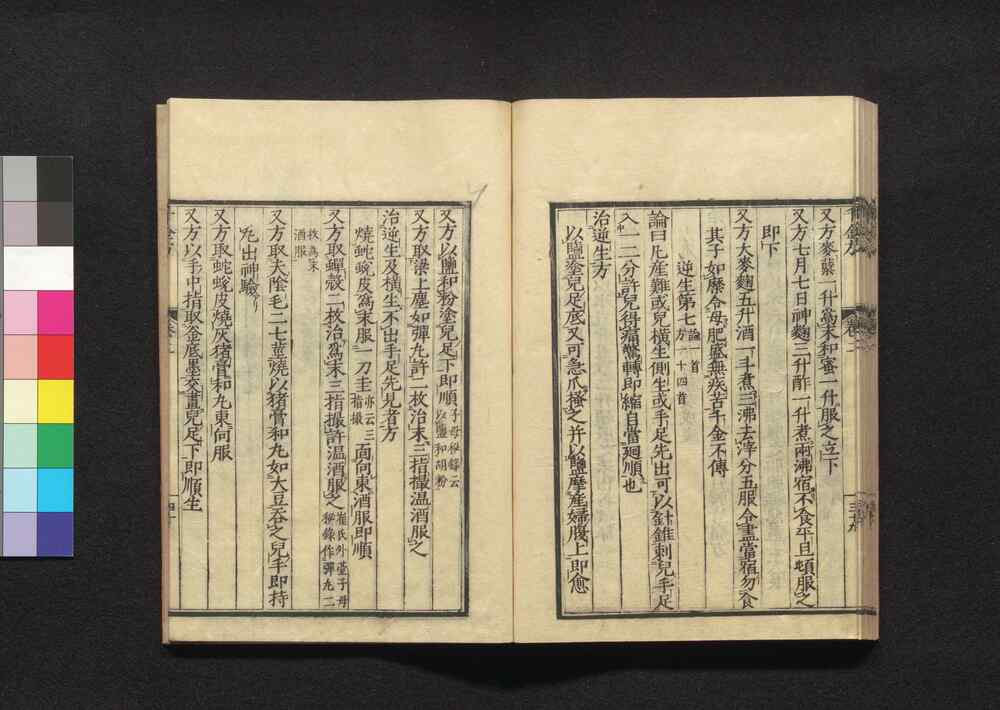 又方麥蘖一升爲末和蜜一升服之立下
又方七月七日神麴三升酢一升煮兩沸宿不食平旦頓服之
即下
又方大麥麴五升酒一斗煮三沸去滓分五服令盡當宿勿食
其子如糜令母肥盛無疾苦千金不傳
逆生第七論一首方十四首
論曰凡產難或兒橫生側生或手足先出可以針錐刺兒手足
入一二分許兒得痛驚轉即縮自當廻順也
治逆生方
以鹽塗兒足底又可急爪搔之并以鹽摩產婦腹上即愈
三十九
又方以鹽和粉塗兒足下即順子母秘錄云以鹽和胡粉
又方取梁上塵如彈丸許二枚治末三指撮温酒服之
治逆生及橫生不出手足先見者方
燒蛇蛻皮爲末服一刀圭亦云三指撮面向東酒服即順
又方取蟬殼二枚治爲末三指撮許温酒服之崔氏外臺子母秘錄作彈丸二
枚爲末酒服
又方取夫陰毛二七莖燒以猪膏和丸如大豆吞之兒手即持
丸出神驗
又方取蛇蛻皮燒灰猪膏和丸東向服
又方以手中指取釜底墨交畫兒足下即順生
千金方
卷二
四十